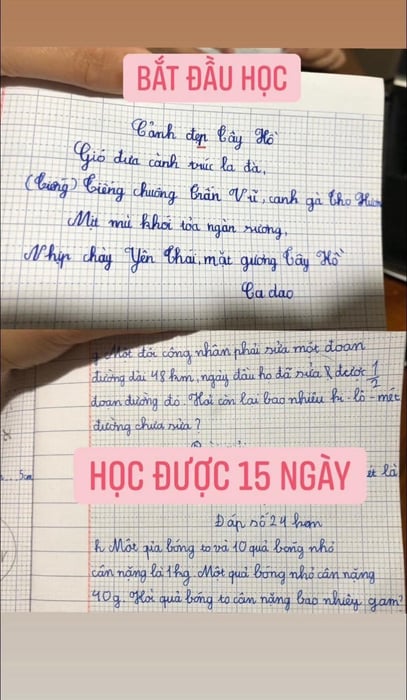 BẮT ĐẦU HỌC
Cảnh đẹp Tây Hồ
Gió đưa cành trúc la đà,
(Tiếng) Tiếng chuông Trấn Vũ, canh gà Thọ Xương
Mịt mù khói tỏa ngàn sương,
Nhịp chày Yên Thái, mặt gương Tây Hồ
Ca dao
Một đôi công nhân phải sửa một đoan
đường dài 48 km, ngày đầu ho đã sửa được 1/2
đoan đường đó. Hỏi còn lai bao nhiêu ki-lô-mét
đường chưa sửa?
5cm
HỌC ĐƯỢC 15 NGÀY
ét là
Đáp số 24
h Một bóng to và 10 quả bóng nhỏ
cân nặng là 1kg. Một quả bóng nhỏ cân nặng
40g. Hỏi quả bóng to cân nặng bao nhiêu gam?